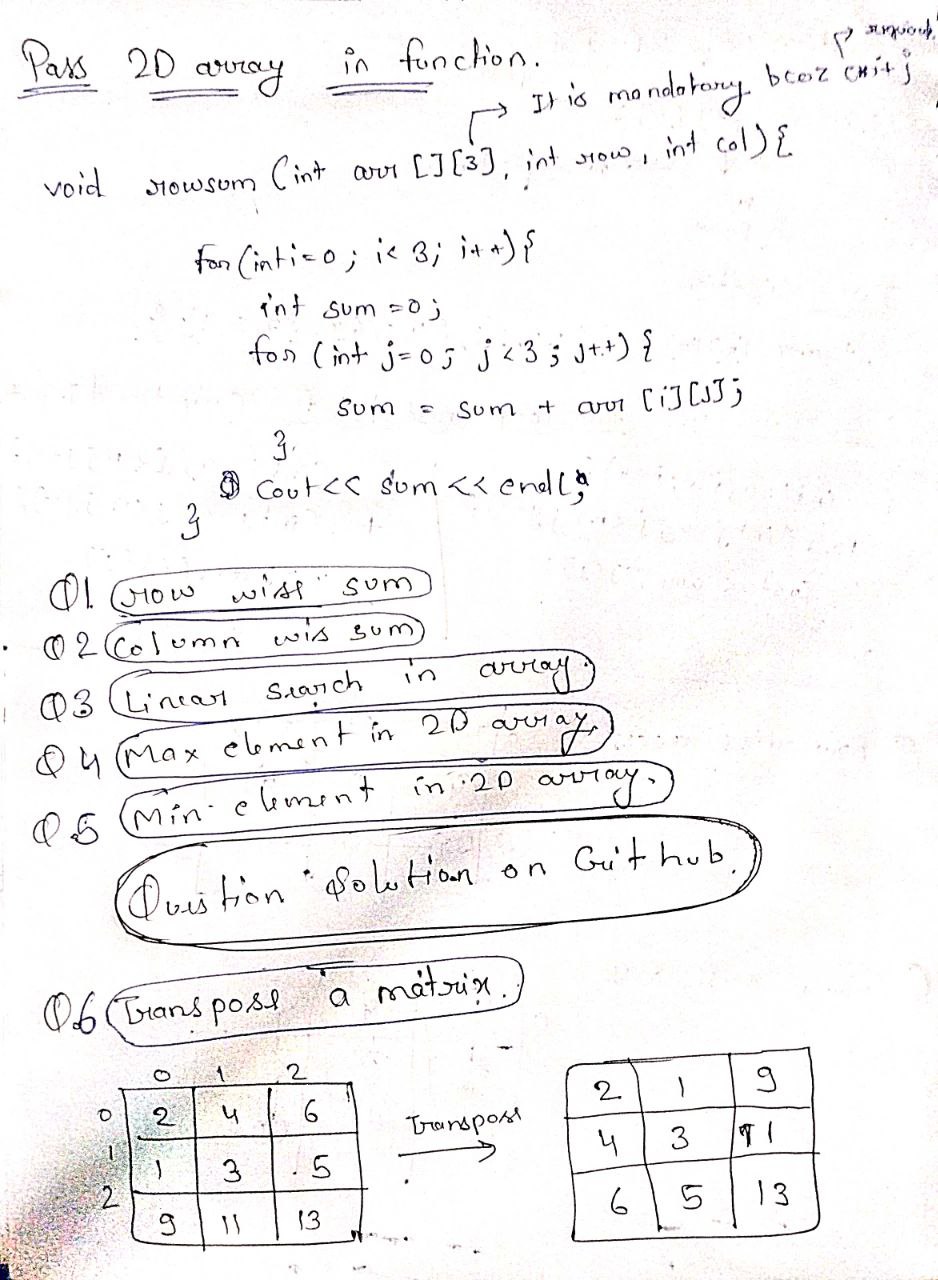 Pass 2D array in function.
It is mandatory bcoz
void rowsum (int arr [][3], int row, int col) {
for (int i=0; i< 3; i++) {
int sum =0;
for (int j=0; j<3; j++) {
sum = sum + arr [i][J];
}
cout << sum << endl;
}
Q1. row wise sum
Q2 Column wis sum
Q3 Linear search in array.
Q4 Max element in 2D array.
Q5 Min element in 2D array.
Question Solution on Github.
Q6 Transpose a matrix.
0 1 2
0 2 4 6
1 1 3 5
2 9 11 13
Transpose
2 1 9
4 3 11
6 5 13